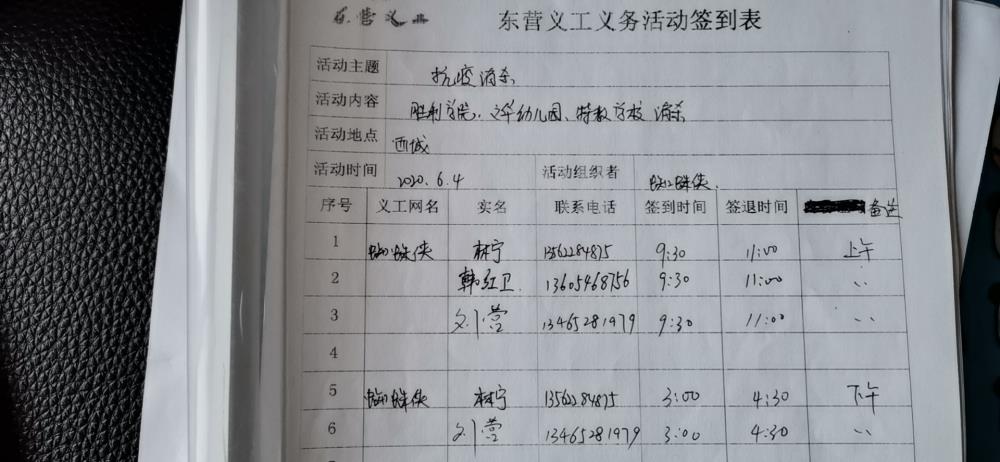 东营义工
东营义工义务活动签到表
活动主题 抗疫消杀
活动内容 胜利学院、文华幼儿园、特教学校 消杀
活动地点 西城
活动时间 2020.6.4 活动组织者 蜘蛛侠.
序号 义工网名 实名 联系电话 签到时间 签退时间 备注
1 蜘蛛侠 林宁 13562284875 9:30 11:00 上午
2 韩红卫 13605468756 9:30 11:00 、、
3 刘营 13465281979 9:30 11:00 、、
4
5 蜘蛛侠 林宁 13562284875 3:00 4:30 下午
6 刘营 13465281979 3:00 4:30 、、